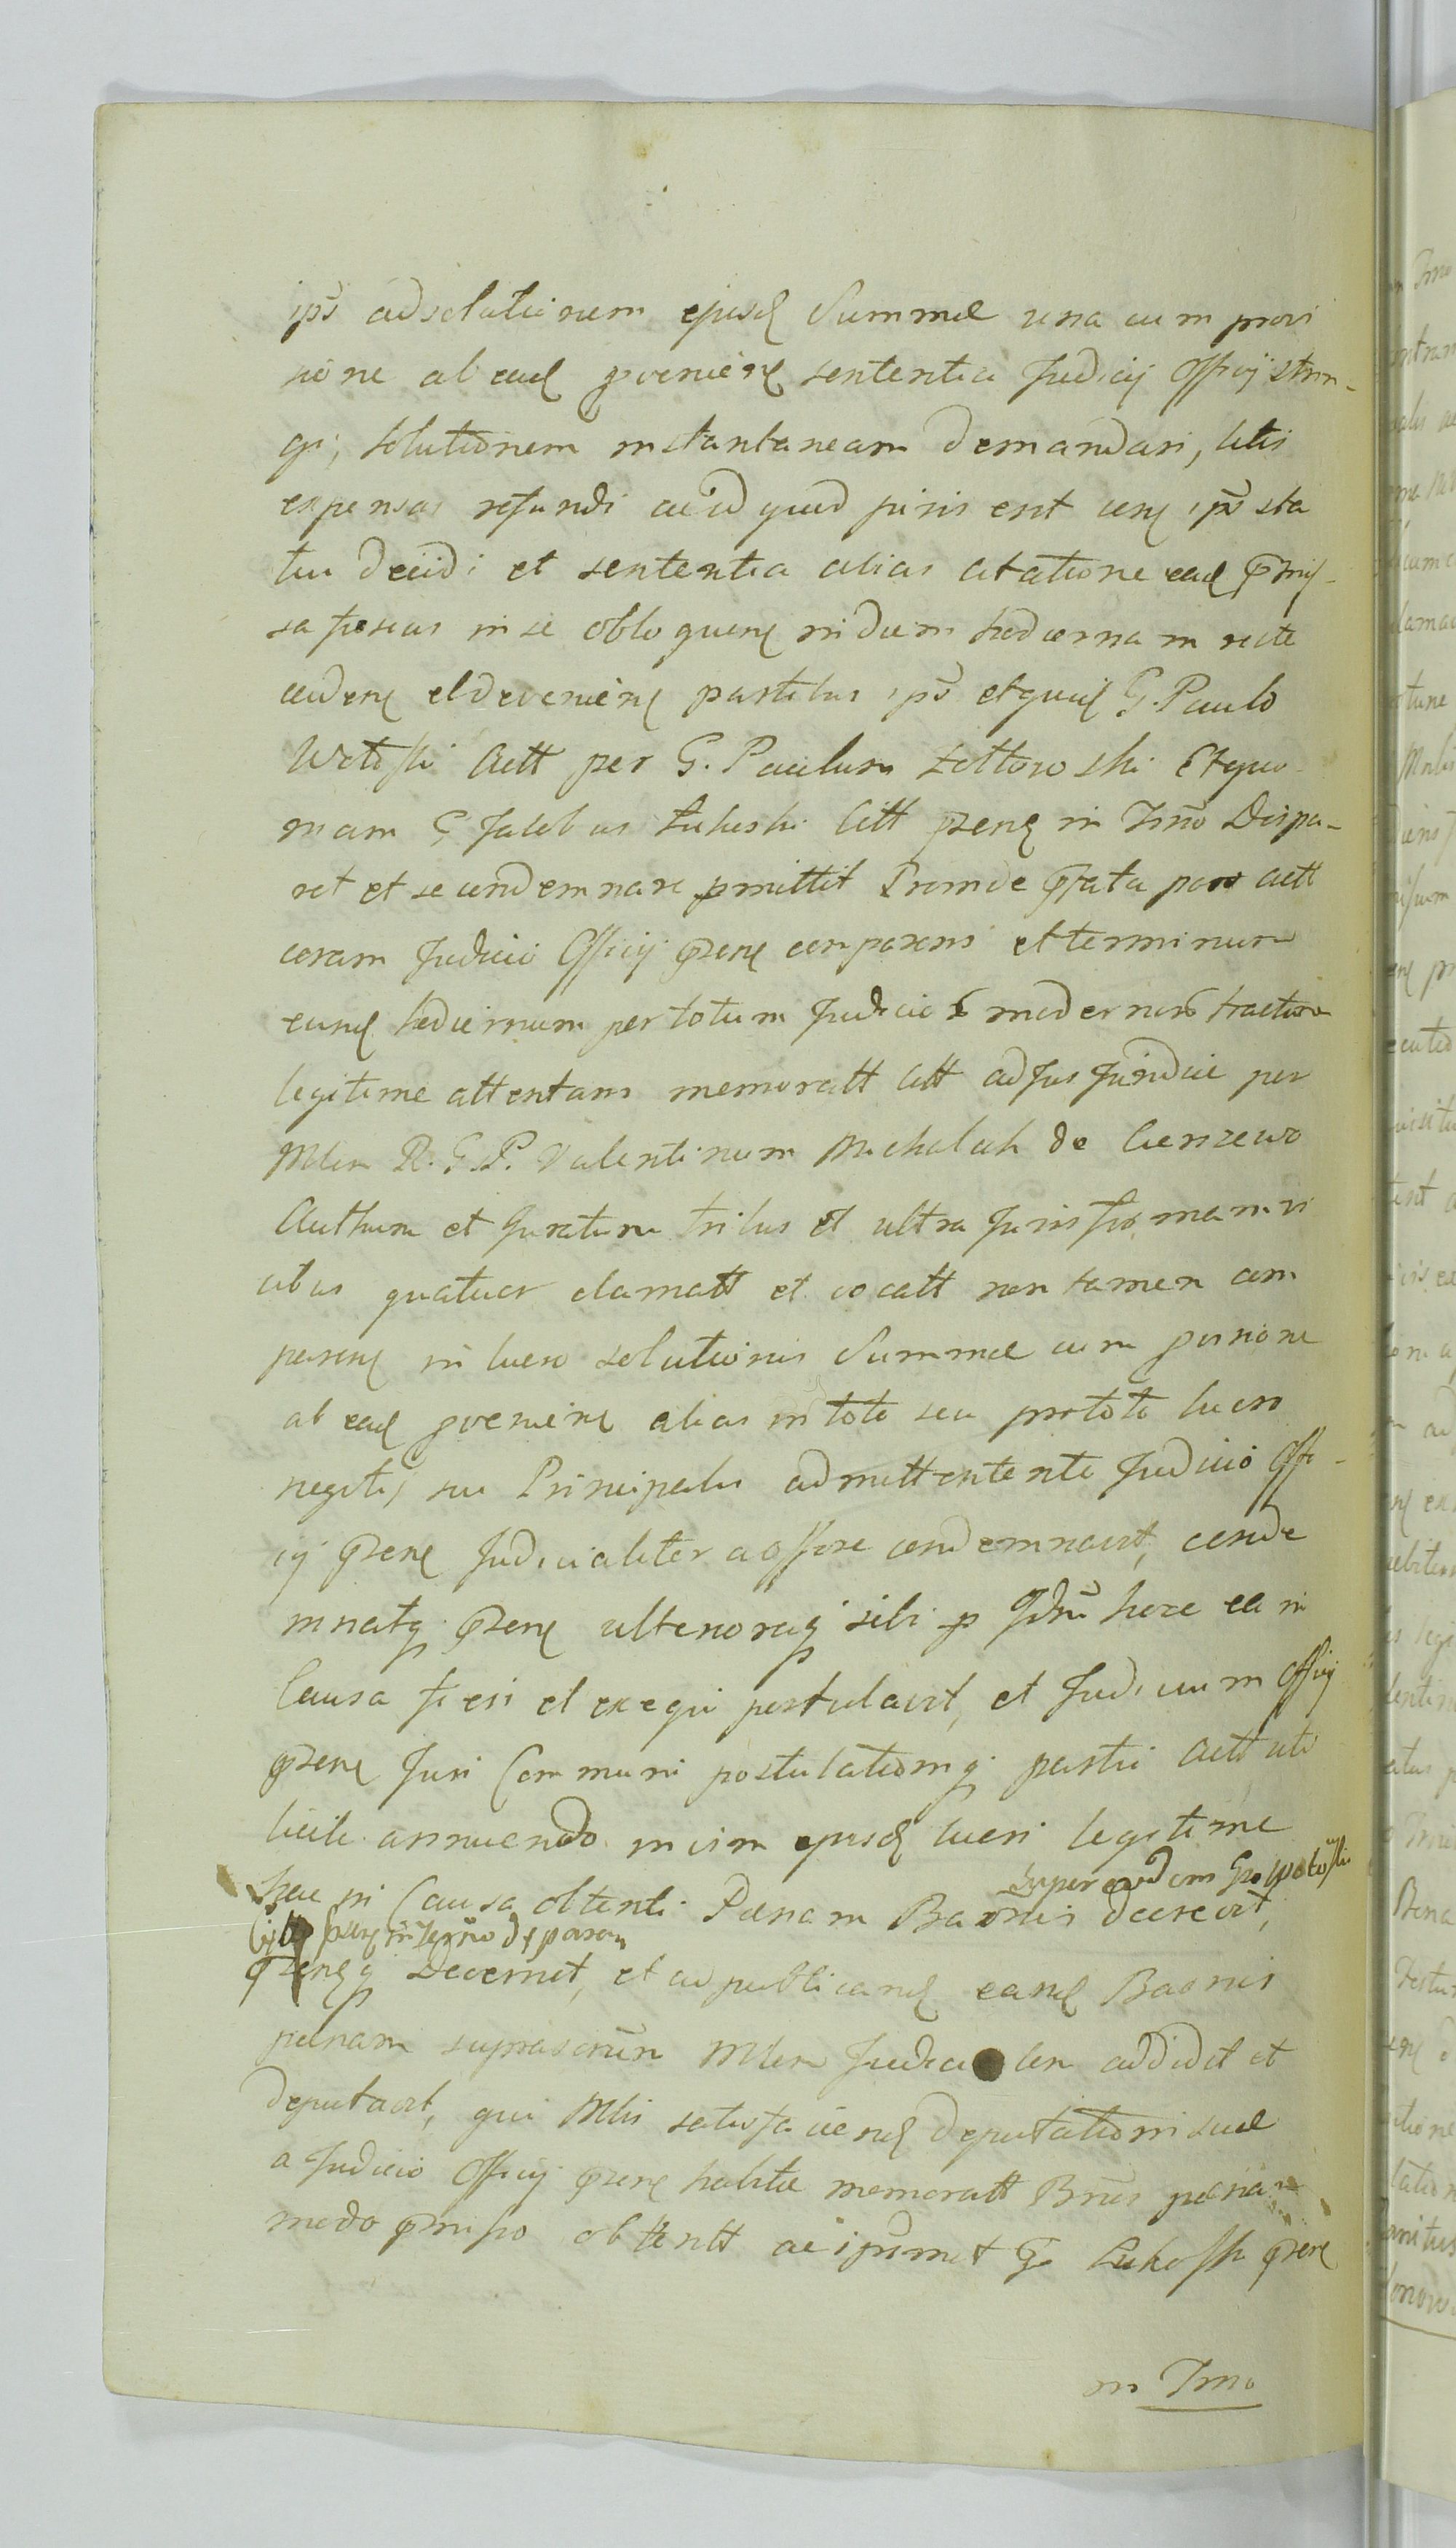 ips adsolutionem ejusd Summae una cum provi
sione ab ead provenien sententia Judicij Officij strin-
gi, solutionem instantaneam demandari, litis
expensas refundi aliud quid juris erit cern ips sta
tui decidi et sententia alias citatione ead praemis-
sa fusius in se obloquen in diem hodiernam recte
caden et devenien partibus ips et quid G. Paulo
Wotoski Actt per G. Paulum Zottowski Et quo
niam G Jacobus Lukoski Citt praesen in Tmo Dispa-
ret et se condemnare pmittit Proinde prata pars actt
coram Judicio Officij praesen comparens et terminum
eund hodiernum per totum Judicior modernor tractum
legitime attentans memoratt Citt ad Jus Juridice per
Mlem R. G. P. Valentinum Michalak de
Authum et Juratum tribus et ultra Juris fris mani vi
cibus quatuor clamatt et vocatt non tamen com
paren in lucro solutionis Summae cum provisione
ab ead provenien alias in toto seu pro toto lucro
negotij sui Principalis admittente Judicio Offi-
cij praesen Judicialiter a Offere condemnavit, conde
mnatq praesen ulterioraq sibi p Jdm hocce ea in
Causa fieri et exequi postulavit, et Judicium Officij
praesen Juri Communi postulationiq partis Actt uti
licite annuendo in vim ejusd lucri legitime
super eundem Gsum Wotoski
hac in Causa obtenti Paenam Baonis decrevit,
Citt parn in Termo dispaream
praesenq Decernit, et ad publicand eand Baonis
paenam suprascrum Mlem Judicialem addidit et
deputavit, qui Mlis satisfaciend deputationi suae
a Judicio Officij praesen habitae memoratt Bnis paenam
modo praemisso obtentt ac ipsmet G Lukoski praesen
in Tmo